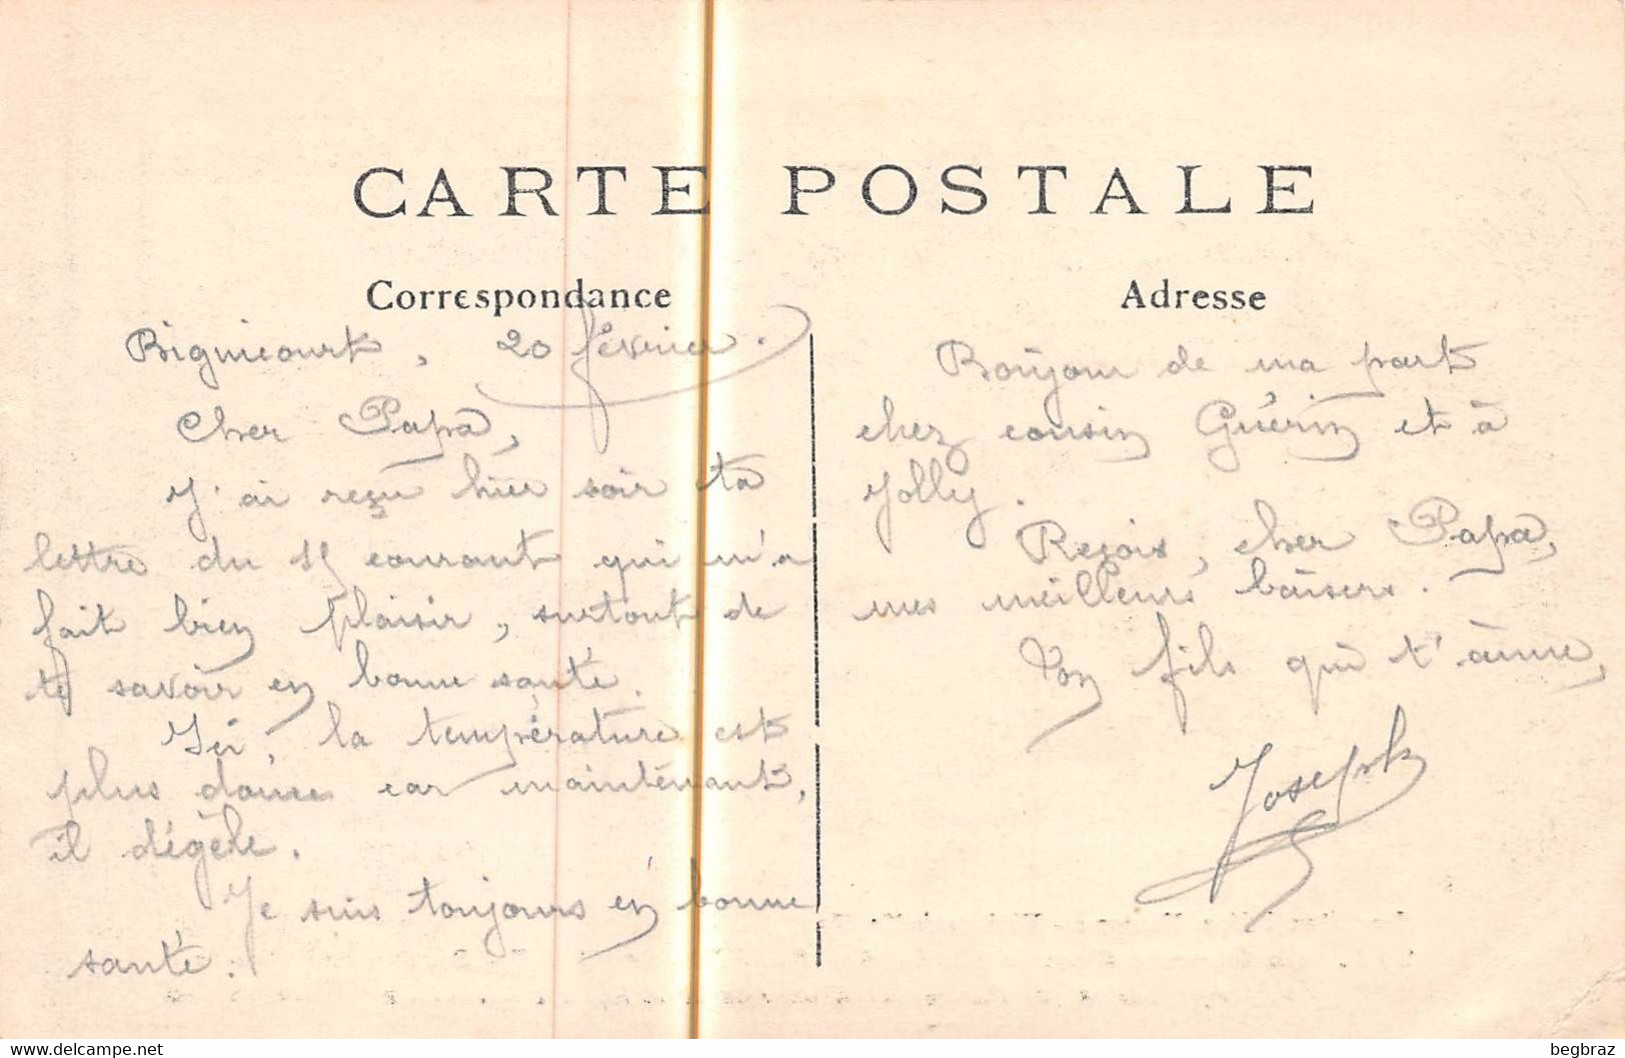 CARTE POSTALE
Correspondance
Bignicourt, 20 février.
Cher Papa,
J'ai reçu hier soir ta
lettre du 15 courant qui m'a
fait bien plaisir, surtout de
te savoir en bonne santé.
Ici, la température est
plus douce car maintenant,
il dégèle.
Je suis toujours en bonne
santé.
Adresse
Bonjour de ma part
chez cousin Guérin et à
Jolly.
Reçois, cher Papa,
mes meilleurs baisers.
Ton fils qui t'aime,
Joseph
Delcampe.net
begbraz